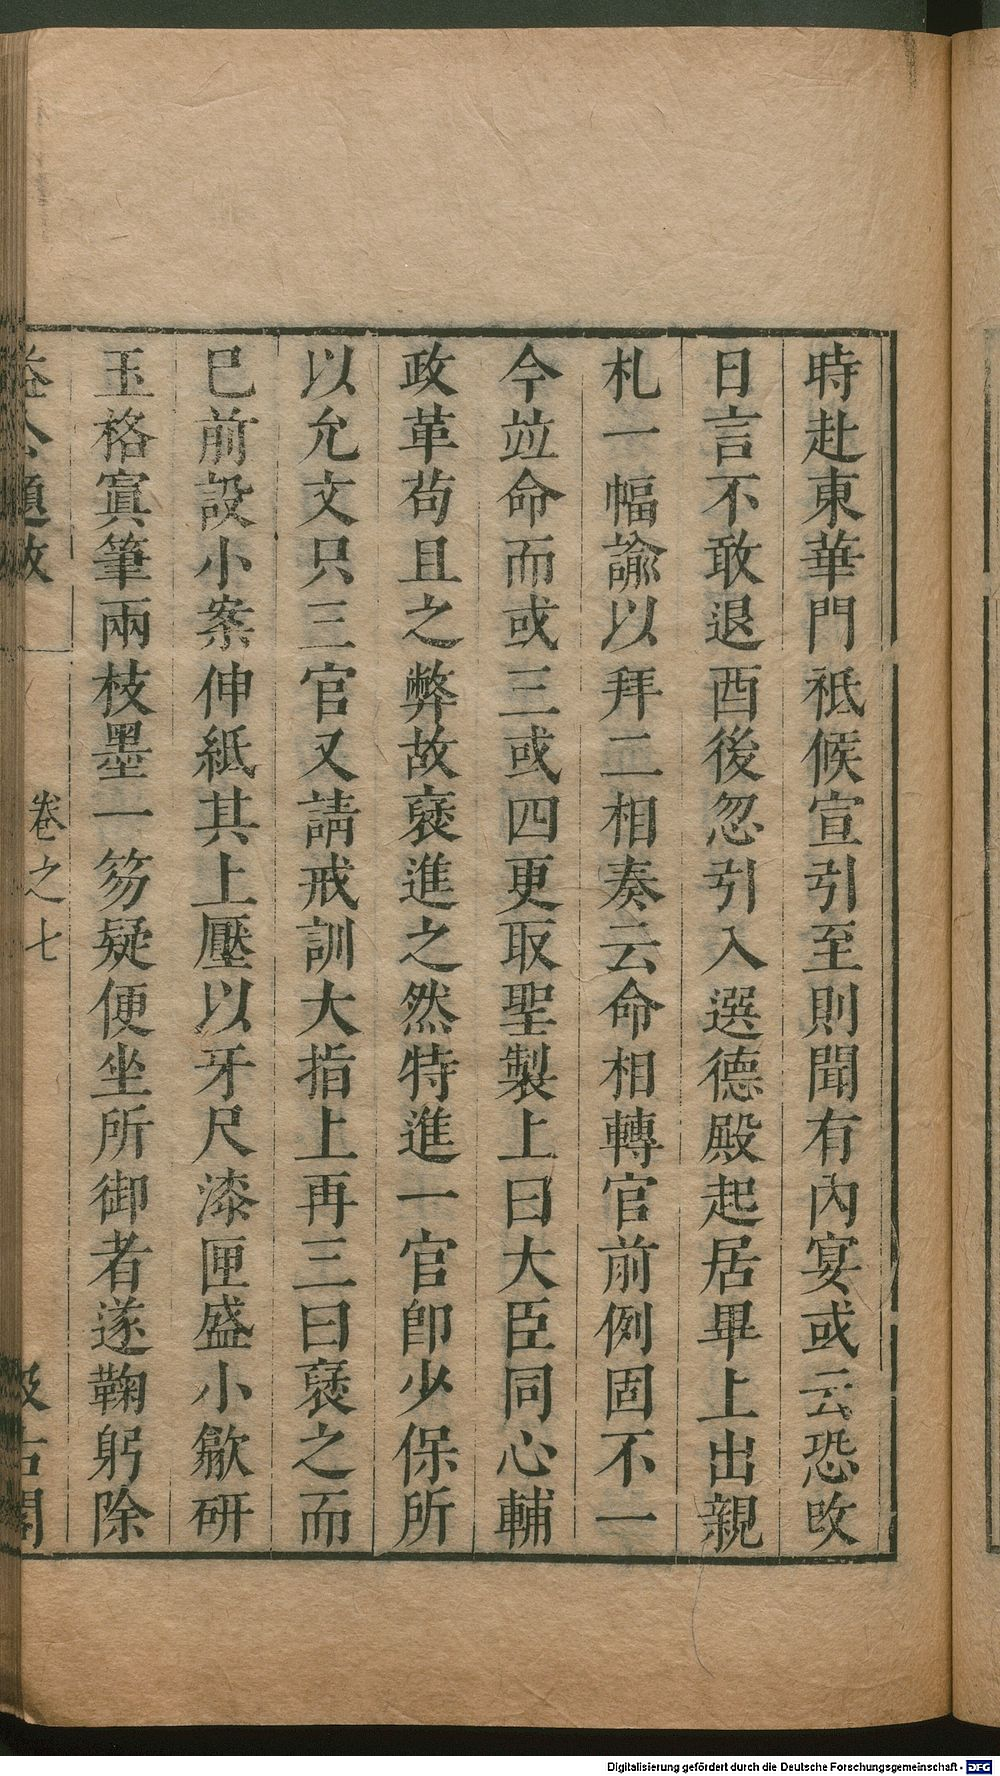 時赴東華門祗候宣引至則聞有內宴或云恐改
日言不敢退酉後忽引入選德殿起居畢上出親
札一幅諭以拜二相奏云命相轉官前例固不一
今竝命而或三或四更取聖製上曰大臣同心輔
政革苟且之弊故褒進之然特進一官卽少保所
以允文只三官又請戒訓大指上再三曰褒之而
已前設小案伸紙其上壓以牙尺漆匣盛小歙研
玉格寘筆兩枝墨一笏疑便坐所御者遂鞠躬除
益公題跋
卷之七
汲古閣
Digitalisierung gefördert durch die Deutsche Forschungsgemeinschaft - DFG